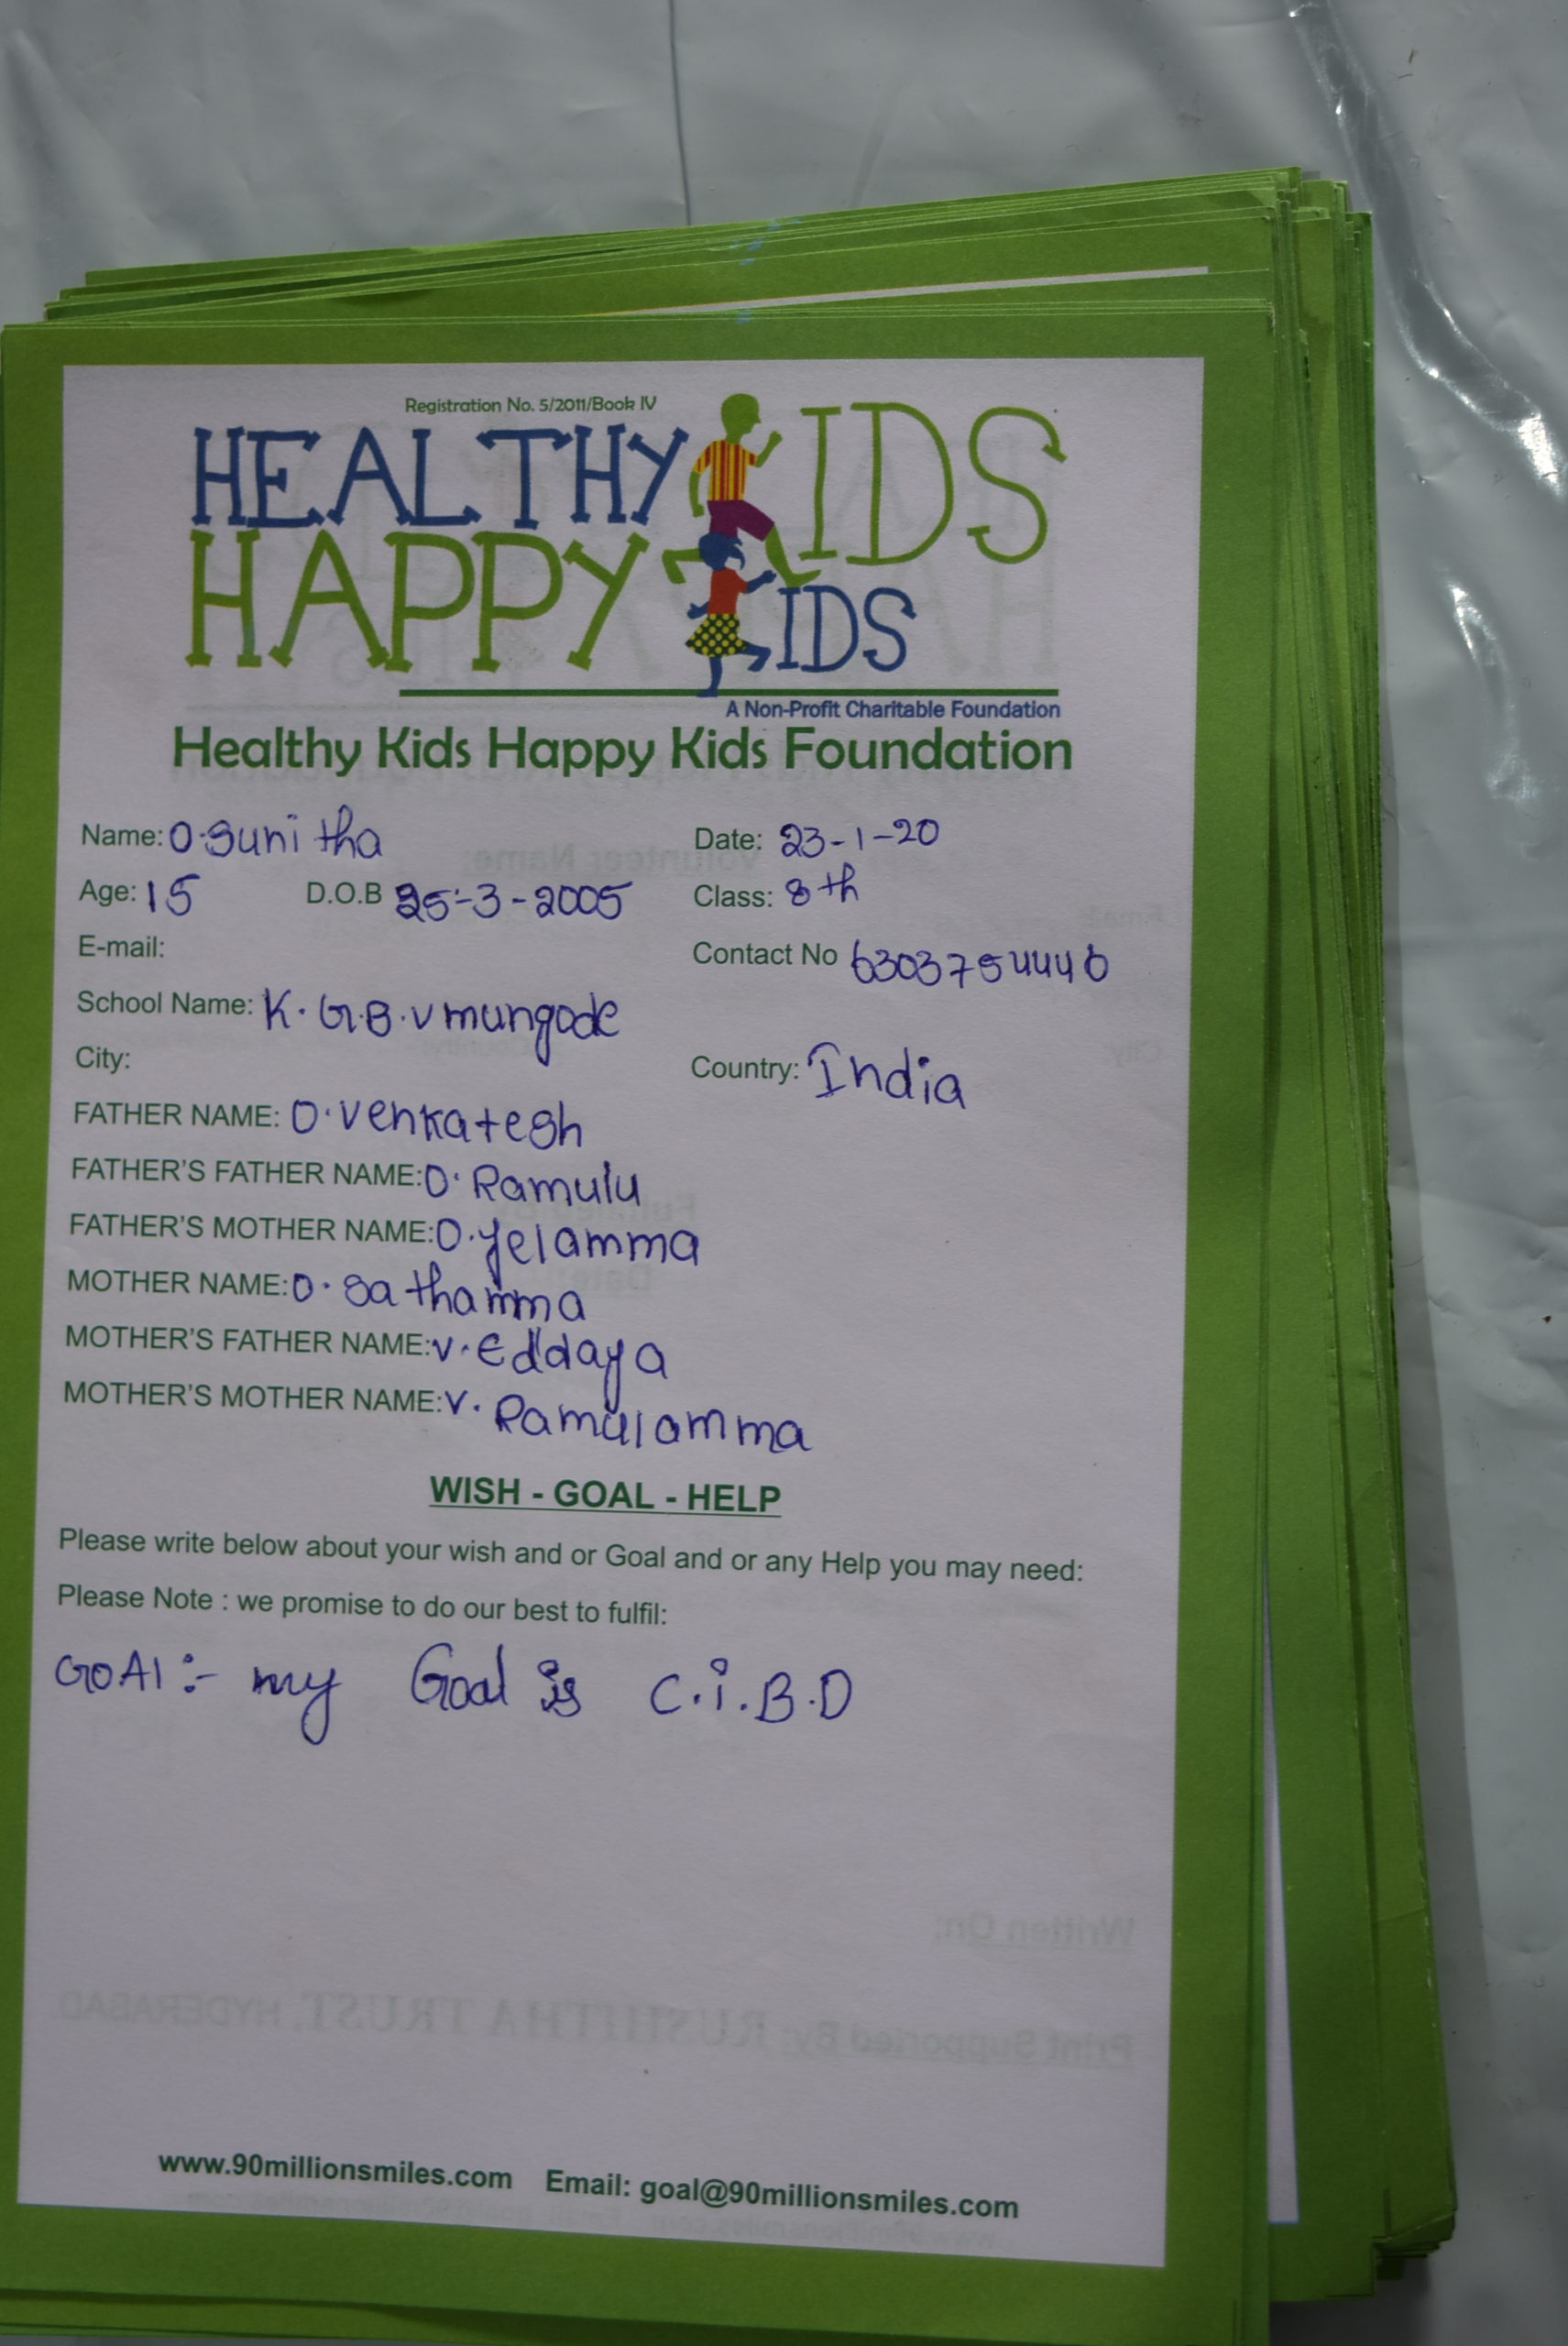 Registration No. 5/2011/Book IV
HEALTHY KIDS
HAPPY KIDS
A Non-Profit Charitable Foundation
Healthy Kids Happy Kids Foundation
Name: O.Sunitha Date: 23-1-20
Age: 15 D.O.B 25-3-2005 Class: 8th
E-mail: Contact No 6303754446
School Name: K.G.B.V mungode
City: Country: India
FATHER NAME: O.Venkatesh
FATHER'S FATHER NAME: O.Ramulu
FATHER'S MOTHER NAME: O.yelamma
MOTHER NAME: O.Sathamma
MOTHER'S FATHER NAME: V.Eddaya
MOTHER'S MOTHER NAME: V.Ramulamma
WISH - GOAL - HELP
Please write below about your wish and or Goal and or any Help you may need:
Please Note : we promise to do our best to fulfil:
GOAl :- my Goal is C.i.B.D
www.90millionsmiles.com Email: goal@90millionsmiles.com